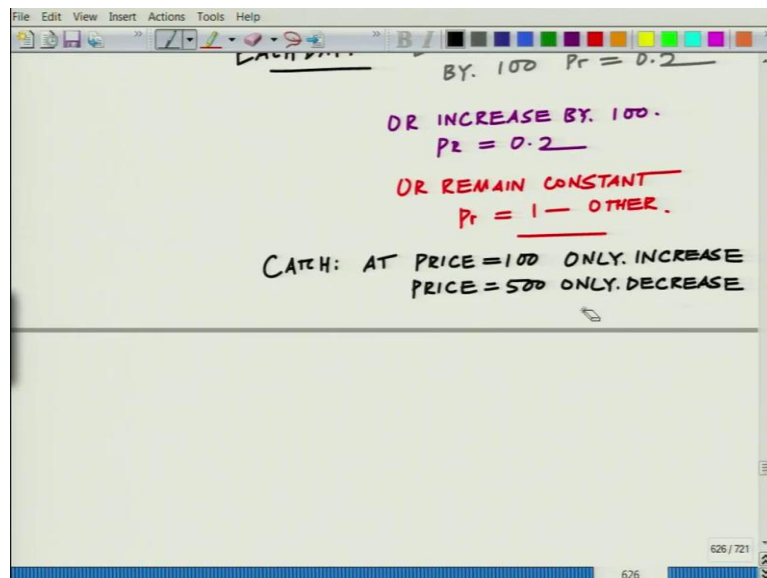 File Edit View Insert Actions Tools Help
B I
BY. 100 Pr = 0.2
OR INCREASE BY. 100.
PR = 0.2
OR REMAIN CONSTANT
Pr = 1 — OTHER.
CATCH: AT PRICE = 100 ONLY. INCREASE
PRICE = 500 ONLY. DECREASE
626 / 721
626